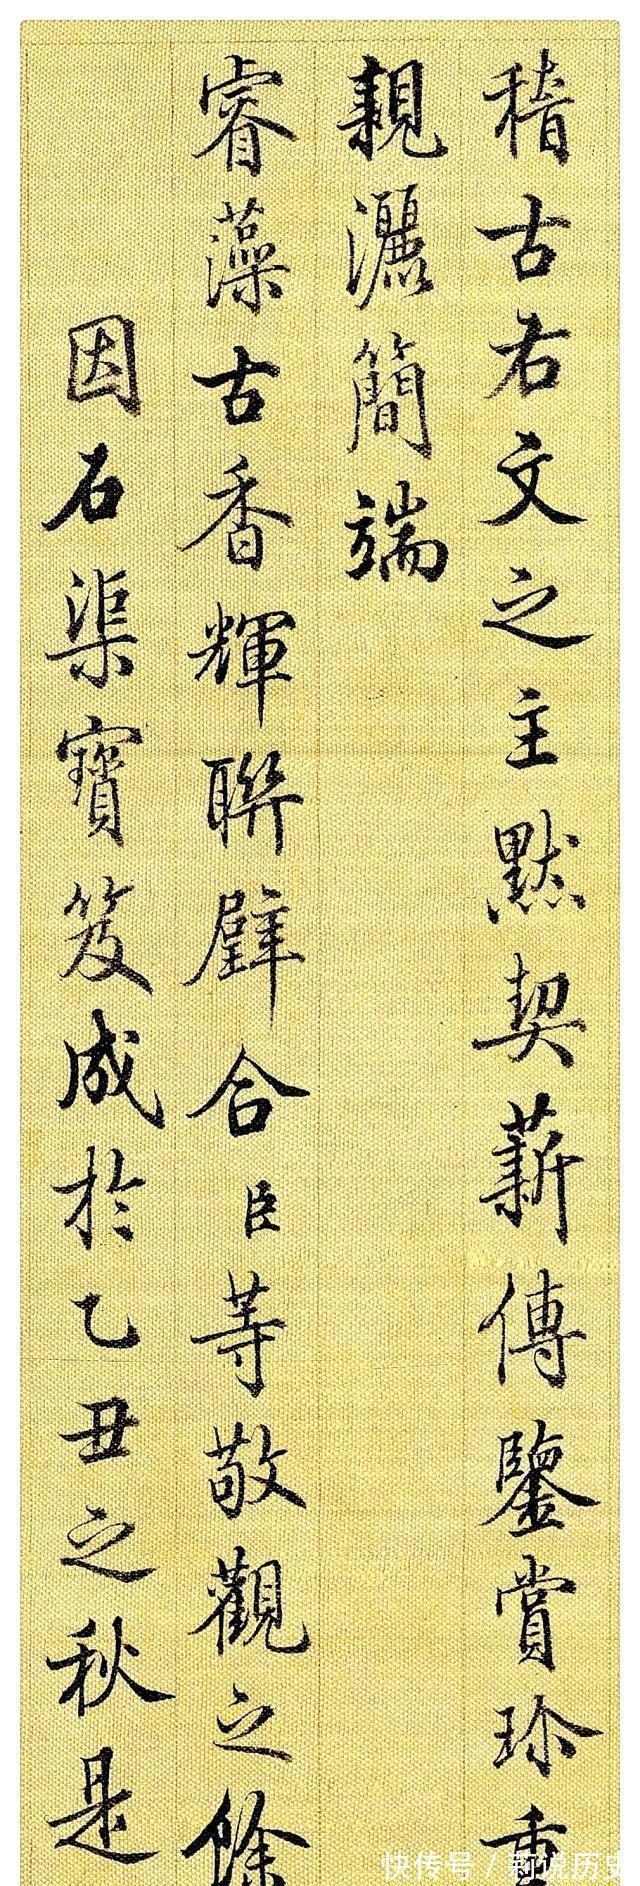 稽古右文之主默契薪傳鑒賞珍重
親灑簡端
睿藻古香輝聯璧合臣等敬觀之餘
因石渠寶笈成於乙丑之秋是
快传号／新说历史